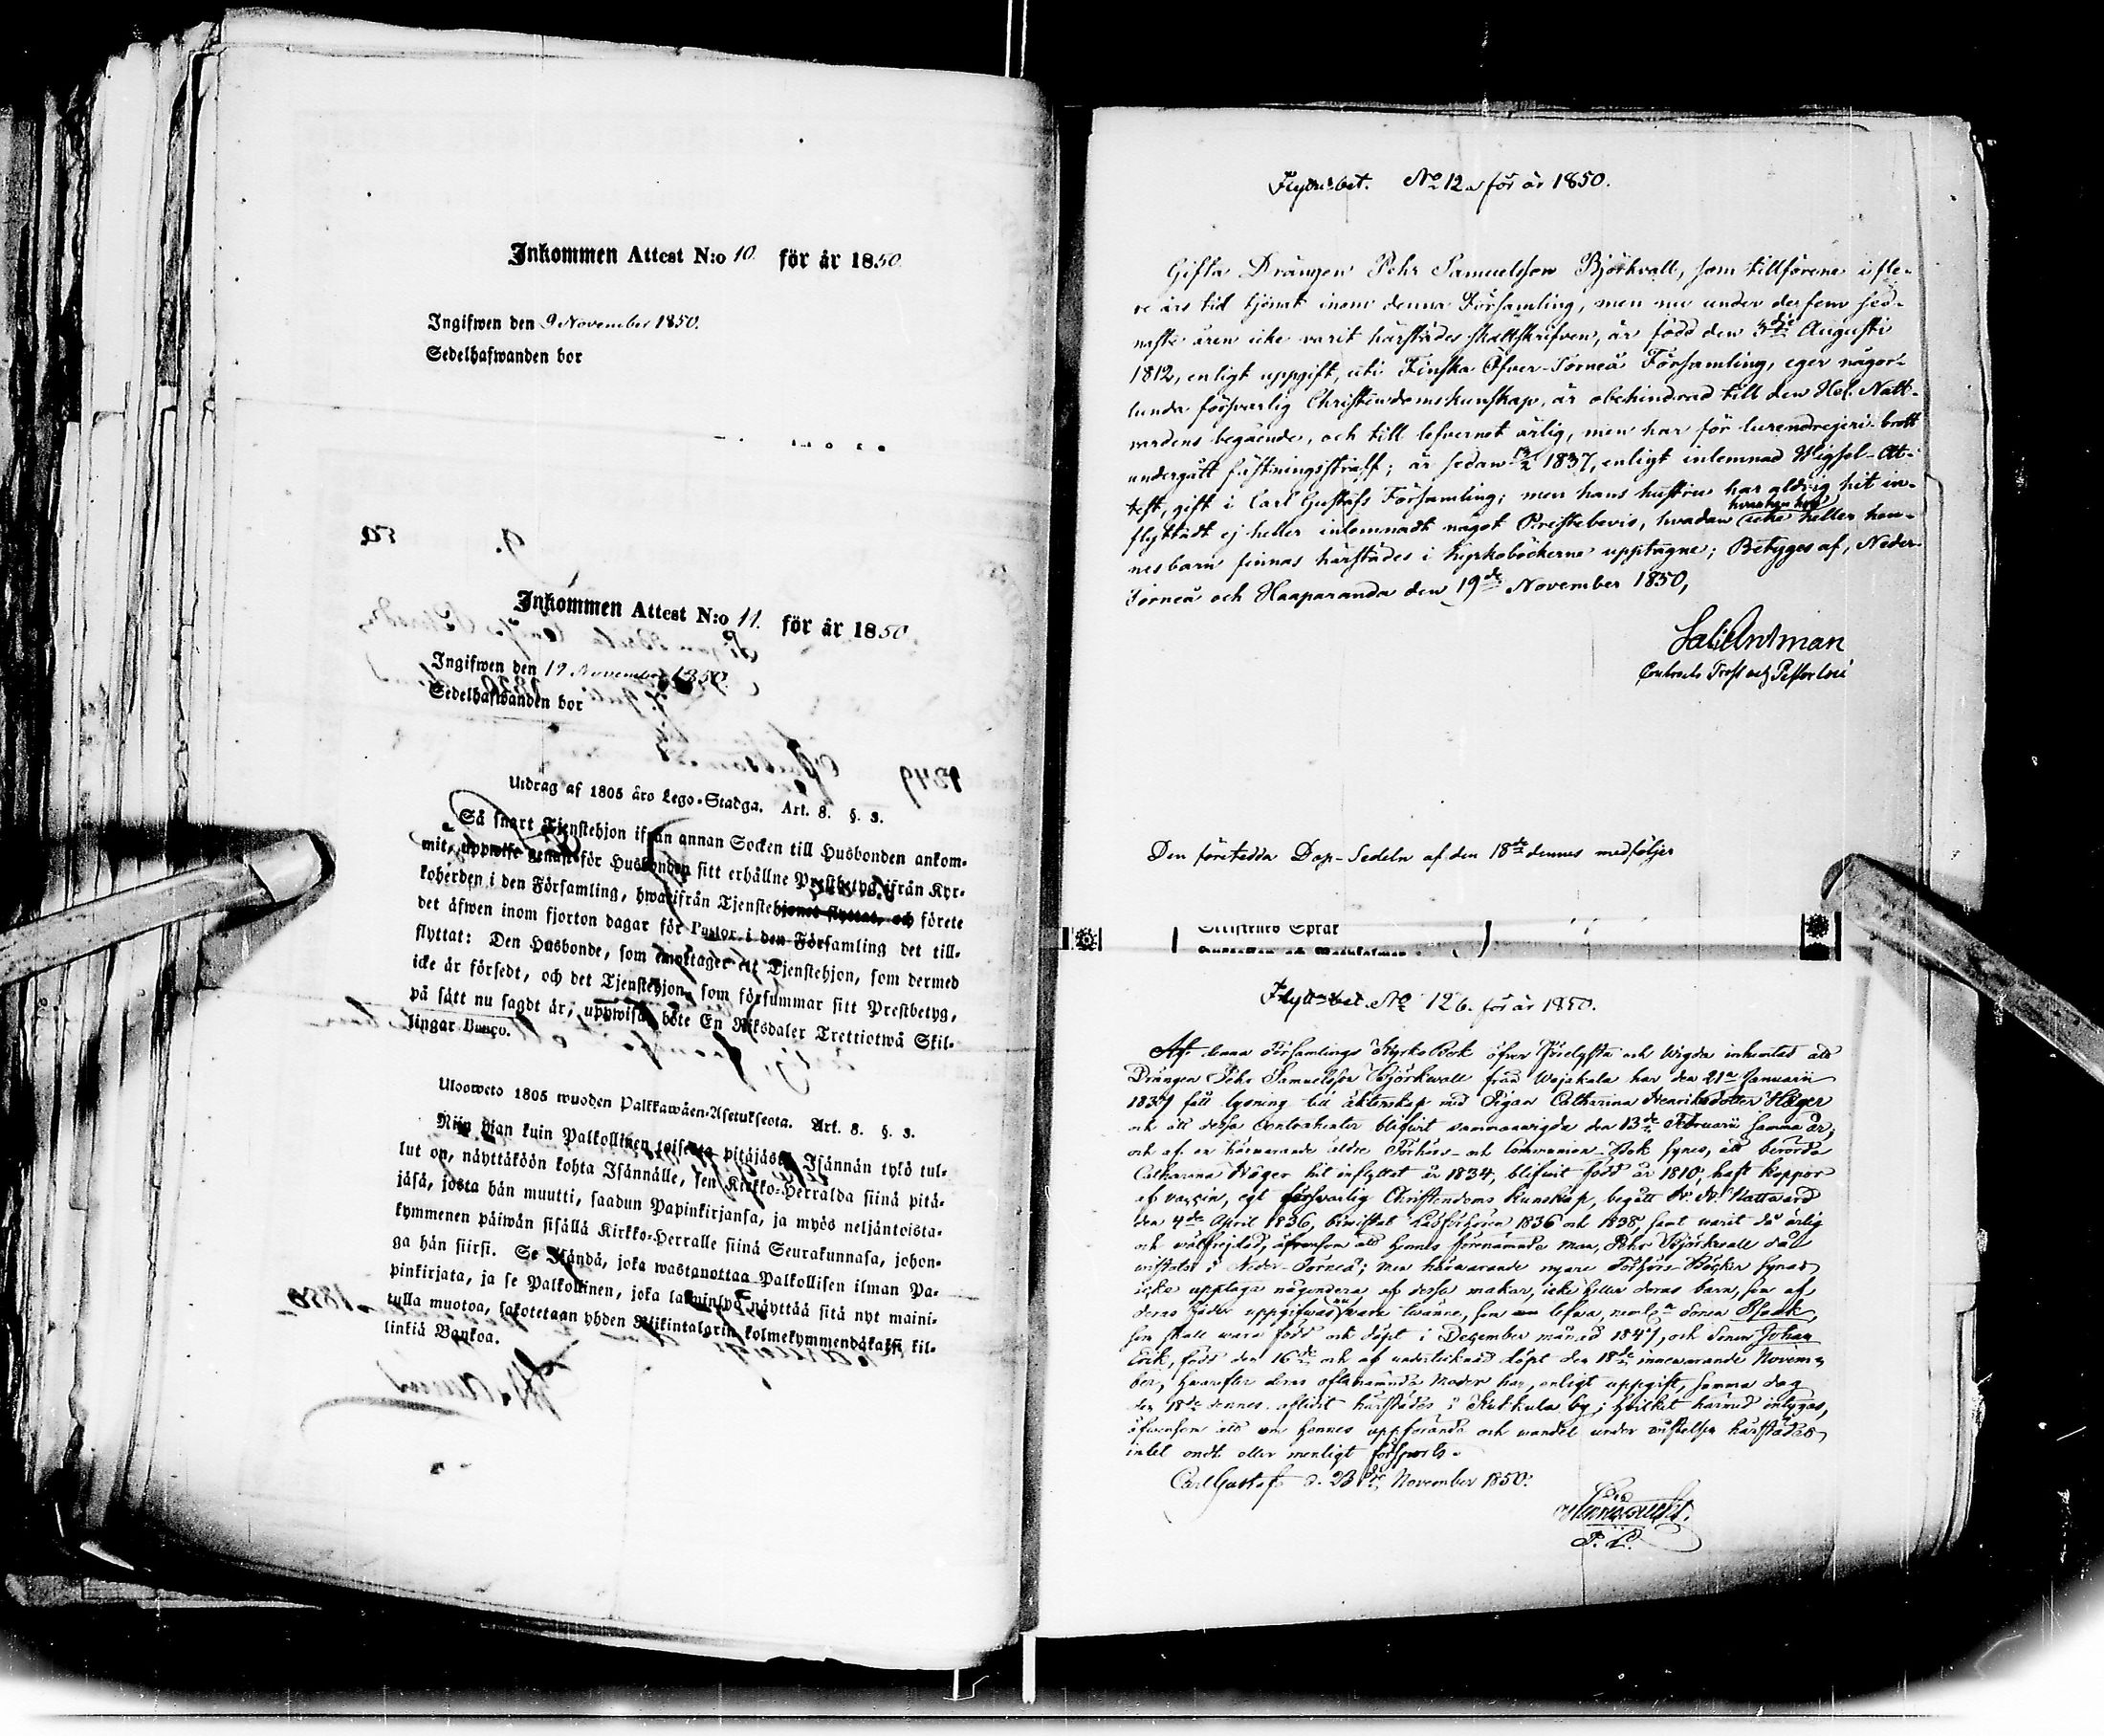 Inkommen Attest N:o 10. för år 1850
Ingifwen den 9 November 1850.
Sedelhafwanden bor
Inkommen Attest N:o 11. för år 1850
Ingifwen den 19 November 1850.
Sedelhafwanden bor
Utdrag af 1805 års Lego-Stadga. Art. 8. §. 3.
Så snart Tjenstehjon ifrån annan Socken till Husbonden ankom-
mit, uppwise genast för Husbonden sitt erhållne Prestbetyg ifrån Kyr-
koherden i den Församling, hwarifrån Tjenstehjonet flyttat, och förete
det äfwen inom fjorton dagar för Pastor i den Församling det till-
flyttat: Den Husbonde, som emottager ett Tjenstehjon, som dermed
icke är försedt, och det Tjenstehjon, som försummar sitt Prestbetyg,
på sätt nu sagdt är, uppwisa, böte En Riksdaler Trettiotwå Skil-
lingar Banco.
Ulosweto 1805 wuoden Palkkawäen-Asetuksesta. Art. 8. §. 3.
Niin pian kuin Palkollinen toisesta pitäjästä Isännän tykö tul-
lut on, näyttäköön kohta Isännälle, sen Kirkko-Herralda siinä pitä-
jäsä, josta hän muutti, saadun Papinkirjansa, ja myös neljäntoista-
kymmenen päiwän sisällä Kirkko-Herralle siinä Seurakunnasa, johon-
ga hän siirsi. Se Isändä, joka wastanottaa Palkollisen ilman Pa-
pinkirjata, ja se Palkollinen, joka laiminlyö näyttää sitä nyt maini-
tulla muotoa, sakotetaan yhden Riikintalarin kolmekymmendäkaksi kil-
linkiä Bankoa.
Flytt.bet. No 12 a för år 1850.
Gifta Drängen Pehr Samuelsson Björkvall, som tillförene i fle-
re års tid tjenat inom denna Församling, men nu under de fem sed-
naste åren icke varit härstädes skattskrifven, är född den 3die Augusti
1812, enligt uppgift, uti Finska Öfver-Torneå Församling, eger någor-
lunda försvarlig Christendomskunskap, är obehindrad till den Hel. Natt-
vardens begående, och till lefvernet ärlig, men har för lurendrejeri-brott
undergått fästningsstraff; är sedan 13/2 1837, enligt inlemnad Wigsel-At-
test, gift i Carl Gustafs Församling; men hans hustru har aldrig hit in-
flyttadt ej heller inlemnadt något Prestebevis, hvadan hvarken hon icke heller hen-
nes barn finnas härstädes i kyrkoböckerne upptagne; Betyges af, Neder-
Torneå och Haaparanda den 19de November 1850,
Contracts Prost och Pastor loci
Den företedda Dop-Sedeln af den 18de dennes medföljer
Flytt.bet. No 12 b. för år 1850.
Af denna Församlings Kyrko Bok öfver Trolofta och Wigda inhemtas att
Drängen Pehr Samuelsson Björkwall från Wojakala har den 21a Januarii
1837 fått lysning till äktenskap med Pigan Catharina Henriksdotter Häger
och att dessa Contrahenter blifvit sammanwigda den 13de Februarii samma år;
och af en härwarande äldre Förhörs- och Communion-Bok synes, att berörda
Catharina Häger hit inflyttat år 1834, blifvit född år 1810; haft koppor
af vaccin, egt försvarlig Christendoms kunskap, begått H. H. Nattward
den 4de April 1836, biwistat Läsförhören 1836 och 1838, samt warit då ärlig
och wälfrejdad, äfwensom att hennes förenämnde man, Pehr Björkwall då
wistats i Neder-Torneå; men härwarande nyare Förhörs-Böcker synas
icke upptaga någondera af dessa makar, icke heller deras barn, som af
deras fader uppgifwas nu vara twänne, som lefva, neml. sonen Isaak,
som skall wara född och döpt i December månad 1847, och sonen Johan
Erik, född den 16de och af undertecknad döpt den 18de innewarande Novem-
ber, hwarefter deras oftanämnda Moder har, enligt uppgift, samma dag
den 18de dennes aflidit härstädes i Kukkola by; hvilket härmed intygas,
äfwensom att om hennes uppförande och wandel under wistelsen härstädes
intet ondt eller menligt försports.
Carl Gustafs d. 23de November 1850.
P. L.